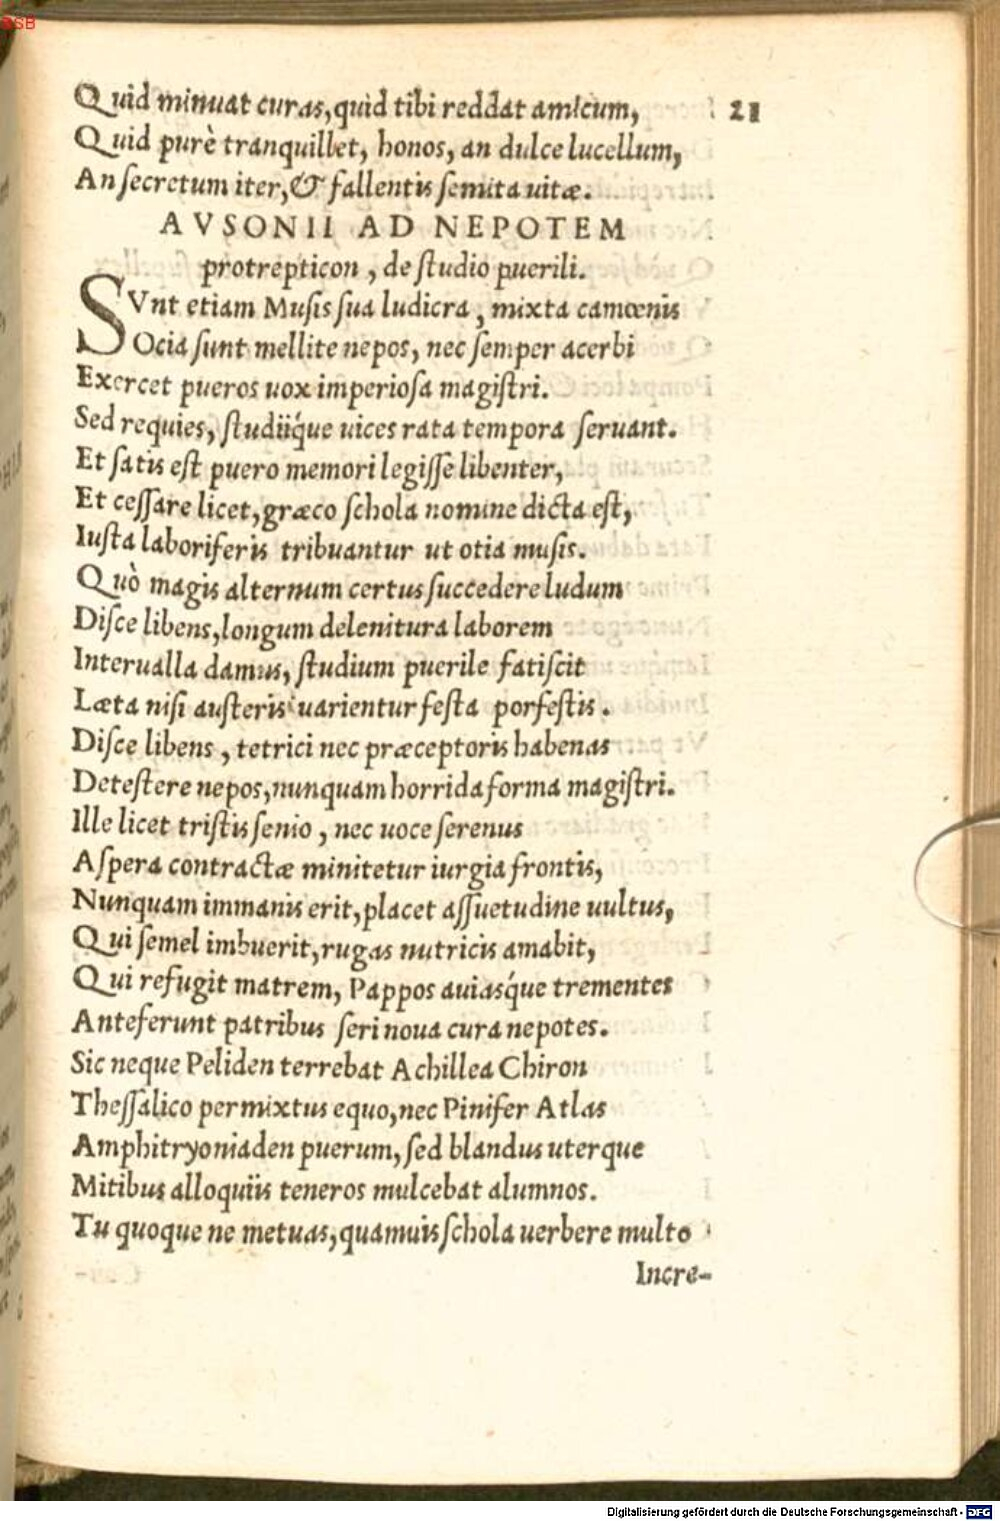 BSB
Quid minuat curas, quid tibi reddat amicum, 21
Quid purè tranquillet, honos, an dulce lucellum,
An ſecretum iter, & fallentis ſemita uitæ.
AVSONII AD NEPOTEM
protrepticon, de ſtudio puerili.
SVnt etiam Muſis ſua ludicra, mixta camœnis
Ocia ſunt mellite nepos, nec ſemper acerbi
Exercet pueros uox imperioſa magiſtri.
Sed requies, ſtudiíq́ue uices rata tempora ſeruant.
Et ſatis eſt puero memori legiſſe libenter,
Et ceſſare licet, græco ſchola nomine dicta eſt,
Iuſta laboriferis tribuantur ut otia muſis.
Quò magis alternum certus ſuccedere ludum
Diſce libens, longum delenitura laborem
Interualla damus, ſtudium puerile fatiſcit
Læta niſi auſteris uarientur feſta porfeſtis.
Diſce libens, tetrici nec præceptoris habenas
Deteſtere nepos, nunquam horrida forma magiſtri.
Ille licet triſtis ſenio, nec uoce ſerenus
Aſpera contractæ minitetur iurgia frontis,
Nunquam immanis erit, placet aſſuetudine uultus,
Qui ſemel imbuerit, rugas nutricis amabit,
Qui refugit matrem, Pappos auiasq́ue trementes
Anteferunt patribus ſeri noua cura nepotes.
Sic neque Peliden terrebat Achillea Chiron
Theſſalico permixtus equo, nec Pinifer Atlas
Amphitryoniaden puerum, ſed blandus uterque
Mitibus alloquiis teneros mulcebat alumnos.
Tu quoque ne metuas, quamuis ſchola uerbere multo
Incre-
Digitalisierung gefördert durch die Deutsche Forschungsgemeinschaft - DFG